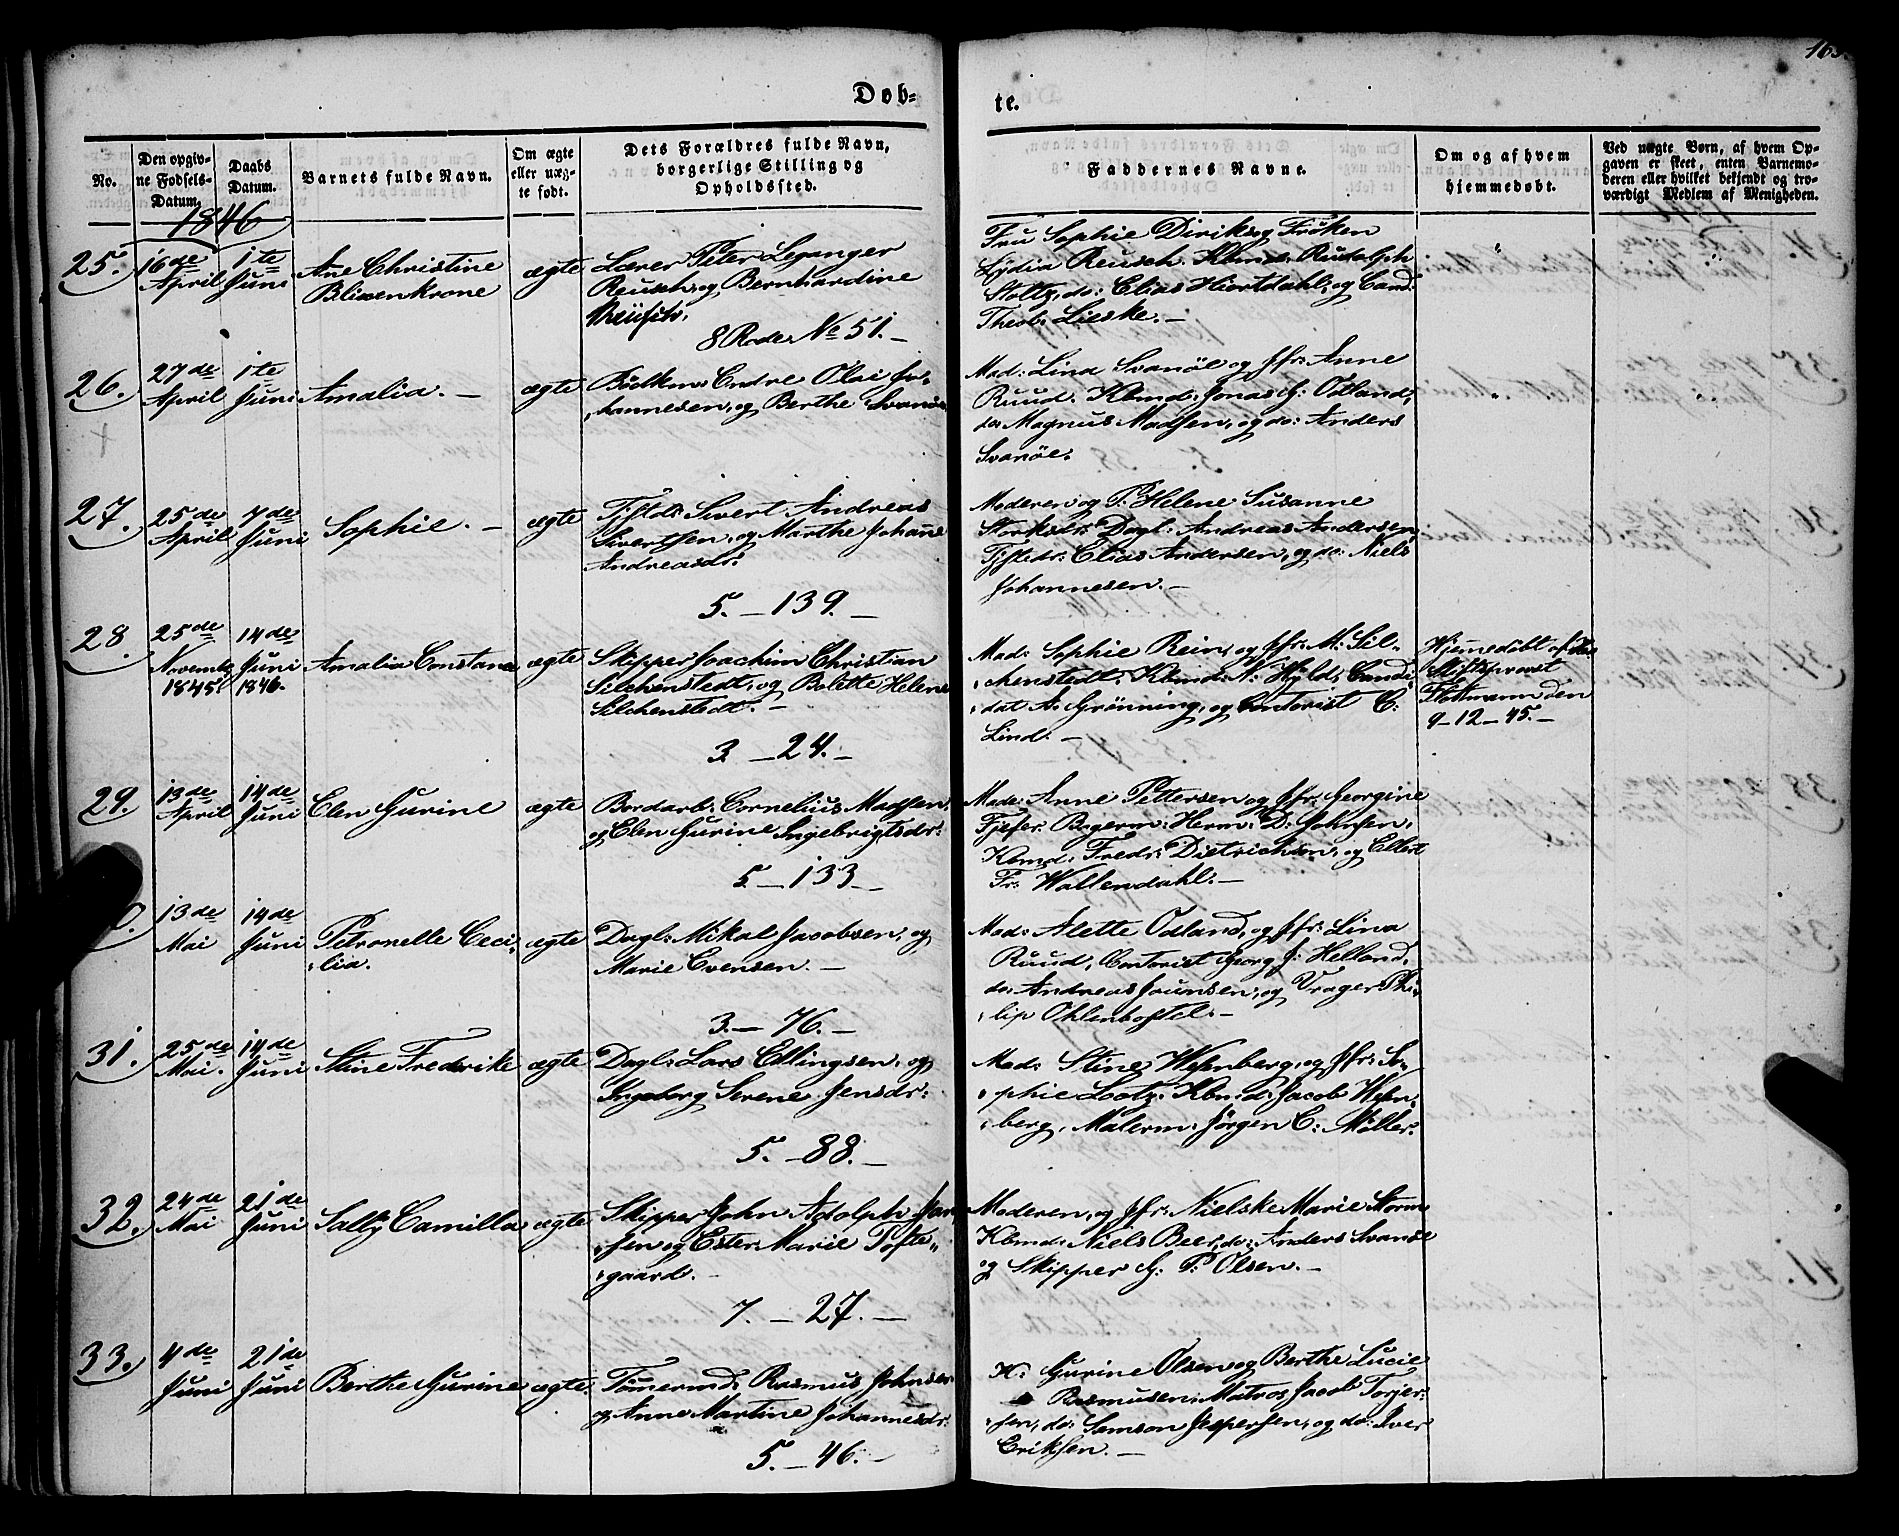 163.
Døb-
te.
No.
Den opgiv-
ne Fødsels-
Datum.
Daabs
Datum.
Barnets fulde Navn.
Om ægte
eller uæg-
te født.
Dets Forældres fulde Navn,
borgerlige Stilling og
Opholdssted.
Faddernes Navne.
Om og af hvem
hjemmedøbt.
Ved uægte Børn, af hvem Op-
gaven er skeet, enten Barnemo-
deren eller hvilket bekjendt og tro-
værdigt Medlem af Menigheden.
1846
25.
16de
April
1te
Juni
Ane Christine
Blixenkrone
ægte
Lærer Peter Leganger
Reusch, og Bernhardine
8 Rode No 51. —
Fru Sophie Diriks og Frøken
Lydia Reusch. Kbmd: Rudolph
Stoltz, do: Elias Hiertdahl, og Cand:
Theol: Lieske. —
"
"
26.
27de
April
1te
Juni
Amalia. —
ægte
Endre Olai Jo-
hannesen, og Berthe Svanøe
Mad: Lina Svanøe og Jfr: Anne
Ruud. Kbmd: Jonas G: Odland,
do: Magnus Madsen, og do: Anders
Svanöe.
"
27.
25de
April
7de
Juni
Sophie. —
ægte
Sivert Andreas
Sivertsen, og Marthe Johane
Andreasdr.
5. — 139. —
Moderen og P: Helene Susanne
Dagl: Andreas Andersen,
Elias Andersen, og do: Niels
Johannesen. —
28.
25de
Novemb:
1845.
14de
Juni
1846.
Amalia Constance
ægte
Skipper Joachim Christian
Silchenstedt, og Bolette Helene
Silchenstedt. —
3. — 24. —
Mad: Sophie Rein, og Jfr: M: Sil-
chenstedt. Kbmd: N: Hyld, Candi-
dat A: Grønning, og Contorist C:
Lind. —
Hjemedöbt af
Stiftsprovst
den
9–12–45. —
29.
13de
April
14de
Juni
Elen Gurine
ægte
Bordarb: Cornelius Madsen,
og Elen Gurine Ingebrigtsdr:
5. — 133 —
Mad: Anne Pettersen og Jfr: Georgine
Bagerm: Herm: D: Johnsen,
Kbmd: Fredr: Dietrichson, og Ellert
Fr: Wallendahl. —
13de
Mai
14de
Juni
Petronelle Ceci-
lia.
ægte
Dagl: Mikal Jacobsen, og
Marie Evensen. —
3. — 76. —
Mad: Alette Odland, og Jfr: Lina
Ruud, Contorist Georg J: Helland,
do: Andreas Jaunsen, og Vrager Phi-
lip Ohlenbostel. —
31.
25de
Mai.
14de
Juni
Stine Fredrike
ægte
Dagl: Lars Ellingsen, og
Ingeborg Serene Jensdr:
5. — 88. —
Mad: Stine Wesenberg, og Jfr: So-
phie Lootz. Kbmd: Jacob Wesen-
berg, Malerm: Jörgen C: Møller.
32.
24de
Mai
21de
Juni
Sally Camilla
ægte
Skipper John Adolph
sen og Ester Marie Tofte-
gaard. —
7. — 27. —
Moderen, og Jfr: Nielske Marie Storm
Kbmd: Niels Beer, do: Anders Svanøe
og Skipper G: P: Olsen. —
33.
4de
Juni
21de
Juni
Berthe Gurine
ægte
Tømermd: Rasmus Johnsen
og Anne Martine Johannesdr:
5. — 46. —
K: Gurine Olsen og Berthe Lucie
Rasmusen. Matros Jacob Torjer-
sen, do: Samson Jespersen, og do: Iver
Eriksen. —